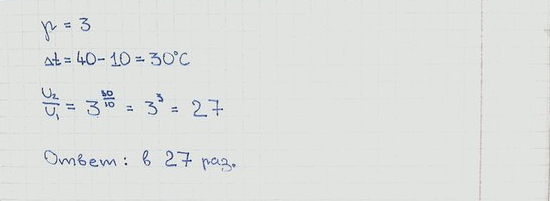 γ = 3
Δt = 40 - 10 = 30°C
U₂/U₁ = 3^(30/10) = 3³ = 27
Ответ: в 27 раз.